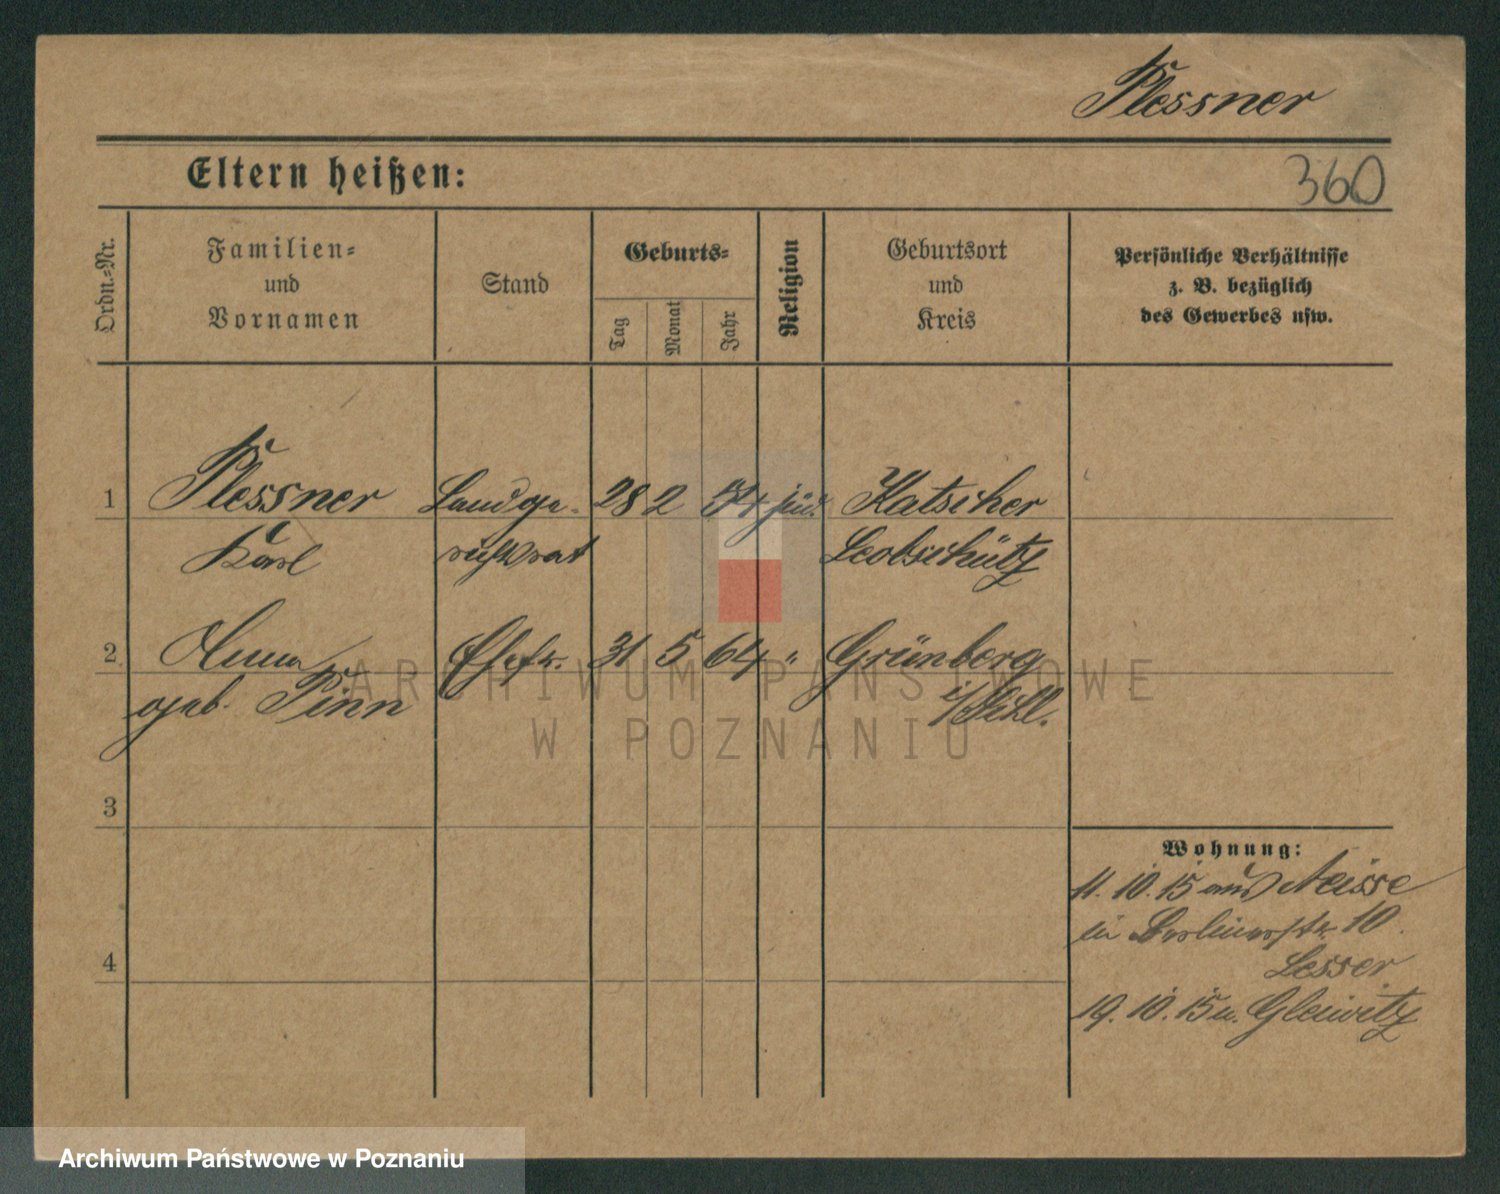 Plessner
Eltern heißen:
360
Ordn.-Nr.
Familien-
und
Vornamen
Stand
Geburts-
Tag
Monat
Jahr
Religion
Geburtsort
und
Kreis
Persönliche Verhältnisse
z. B. bezüglich
des Gewerbes usw.
1
Plessner
Karl
Landge-
richtsrat
28 2 54 jüd.
Katscher
Leobschütz
2
geb. Pinn
Ehefr.
31 5 64 "
Grünberg
i/Schl.
3
4
Wohnung:
11. 10. 15 aus Neisse
in Berlinerstr. 10.
Lesser
19. 10. 15 n. Gleiwitz
ARCHIWUM PAŃSTWOWE
W POZNANIU
Archiwum Państwowe w Poznaniu